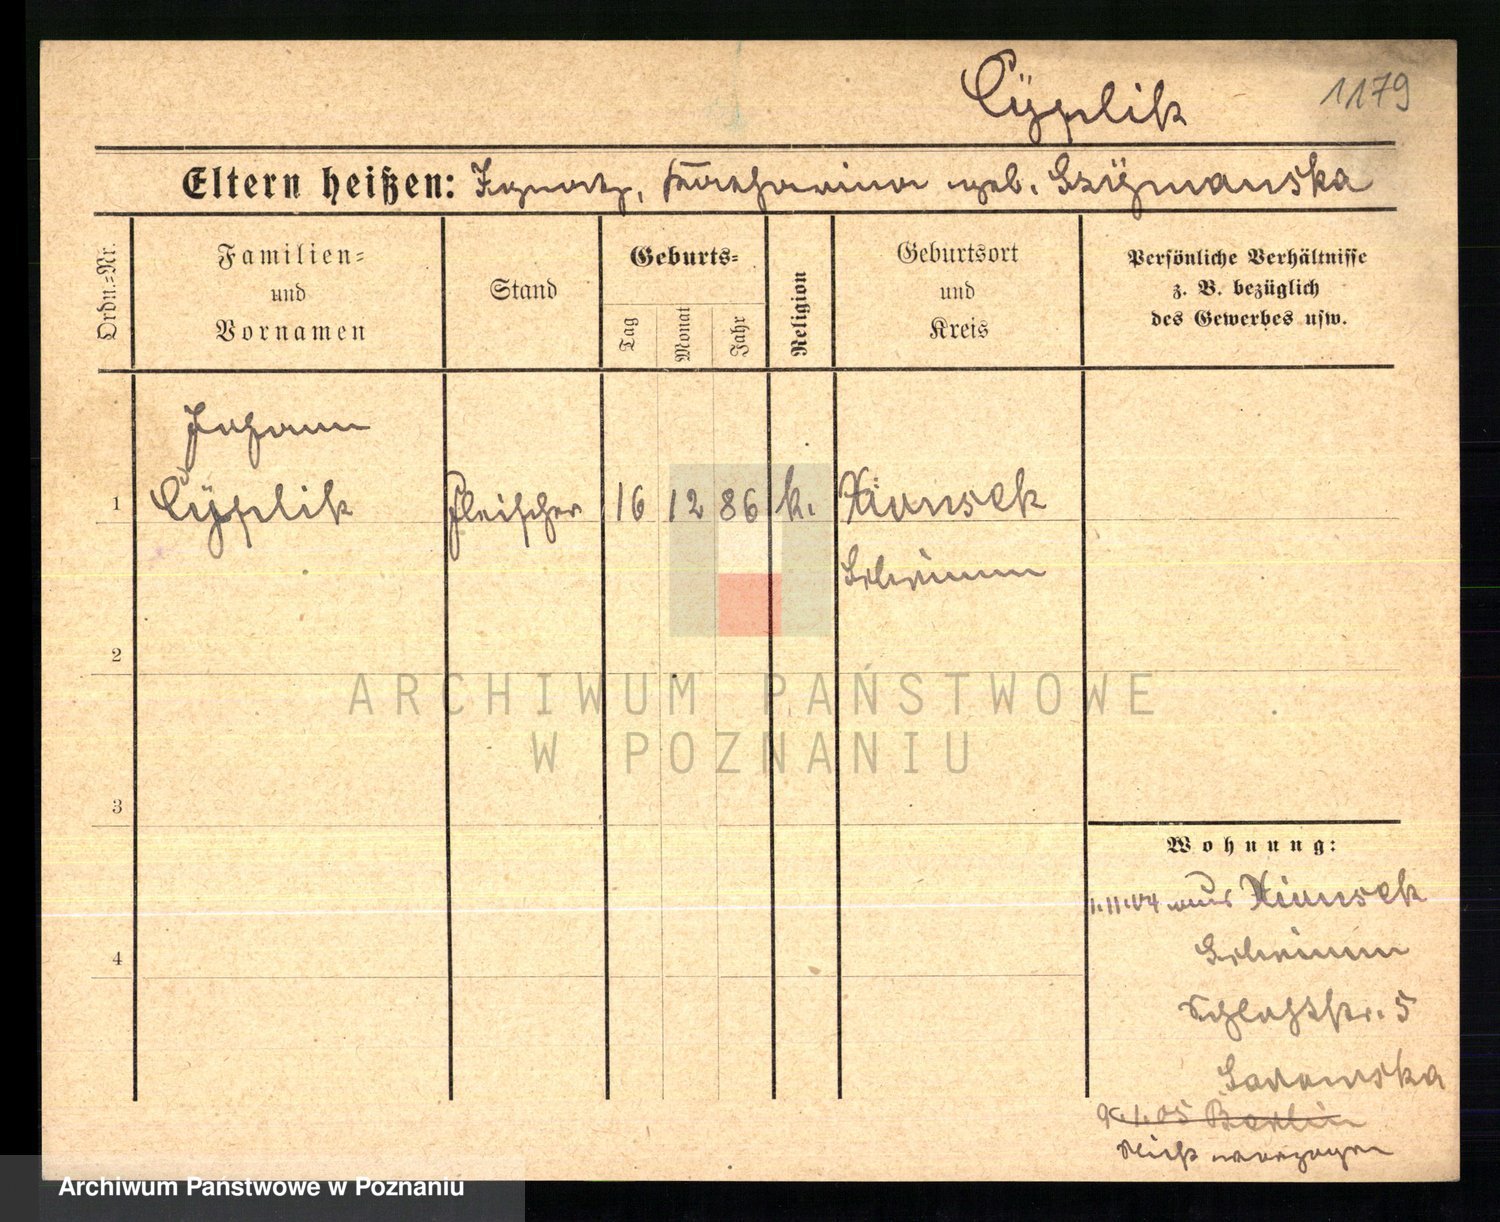 Cÿplik 1179
Eltern heißen: Ignatz, Katharina geb. Szÿmanska
Ordn.=Nr.
Familien=
und
Vornamen
Stand
Geburts=
Tag
Monat
Jahr
Religion
Geburtsort
und
Kreis
Persönliche Verhältnisse
z. B. bezüglich
des Gewerbes usw.
Johann
1 Cÿplik Fleischer 16 12 86 k. Xionsek
Schrimm
2
3
4
ARCHIWUM PAŃSTWOWE
W POZNANIU
Wohnung:
1.11.04 aus Xionsek
Schrimm
Schloßstr. 5
Berlin
Nicht verzogen
Archiwum Państwowe w Poznaniu